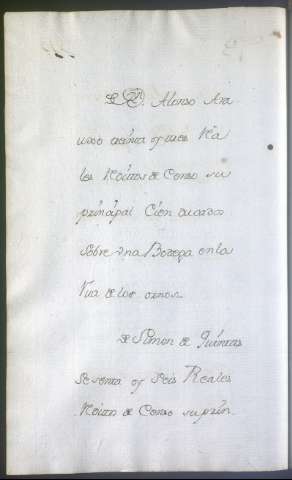 De D. Alonso Ara
uxo treinta y tres Rea
les Réditos de Censo su
prinȝipal Cien ducados
Sobre vna Bodega en la
Rua de los ornos
De Simon de Quintas
Sesenta y Seis Reales
Réditos de Censo su prin